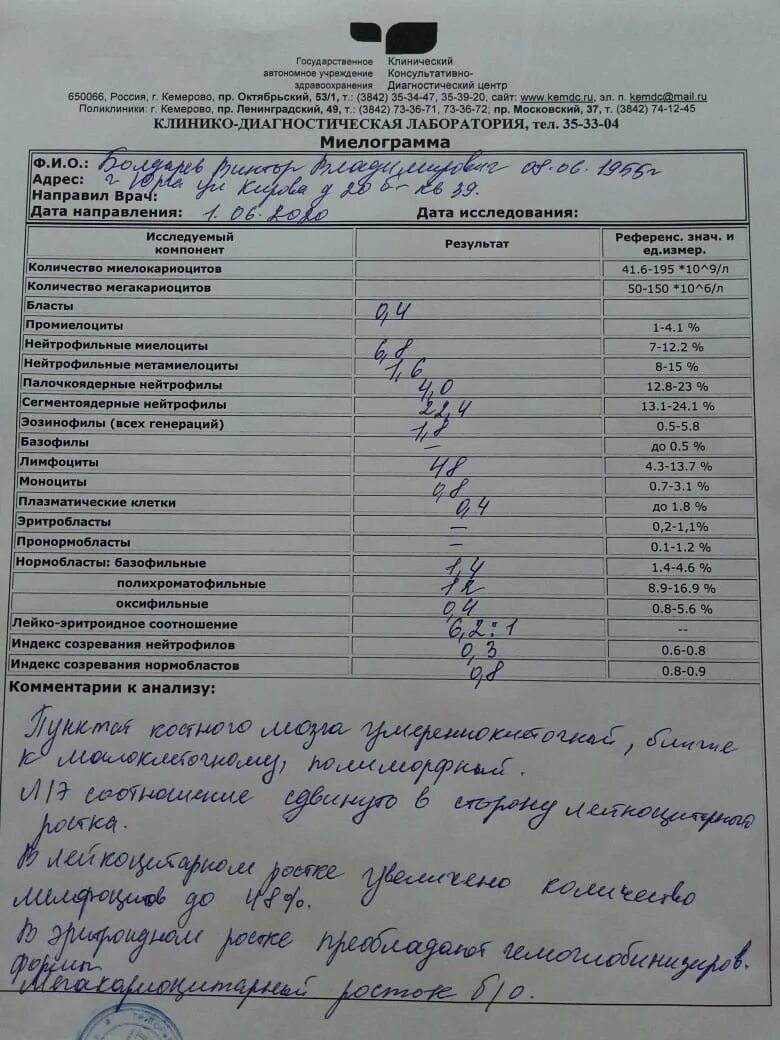 Государственное автономное учреждение здравоохранения
Клинический Консультативно-Диагностический центр
650066, Россия, г. Кемерово, пр. Октябрьский, 53/1, т.: (3842) 35-34-47, 35-39-20, сайт: www.kemdc.ru, эл. п. kemdc@mail.ru
Поликлиники: г. Кемерово, пр. Ленинградский, 49, т.: (3842) 73-36-71, 73-36-72; пр. Московский, 37, т. (3842) 74-12-45
КЛИНИКО-ДИАГНОСТИЧЕСКАЯ ЛАБОРАТОРИЯ, тел. 35-33-04
Миелограмма
Ф.И.О.: Болдарев Виктор Владимирович 08.06.1955г
Адрес: г Юрга ул Кирова д 20 б- кв 39.
Направил Врач:
Дата направления: 1.06.2020 Дата исследования:
Исследуемый компонент Результат Референс. знач. и ед.измер.
Количество миелокариоцитов 41.6-195 *10^9/л
Количество мегакариоцитов 50-150 *10^6/л
Бласты 0,4
Промиелоциты 1-4.1 %
Нейтрофильные миелоциты 6,8 7-12.2 %
Нейтрофильные метамиелоциты 1,6 8-15 %
Палочкоядерные нейтрофилы 4,0 12.8-23 %
Сегментоядерные нейтрофилы 22,4 13.1-24.1 %
Эозинофилы (всех генераций) 1,8 0.5-5.8
Базофилы – до 0.5 %
Лимфоциты 48 4.3-13.7 %
Моноциты 0,8 0.7-3.1 %
Плазматические клетки 0,4 до 1.8 %
Эритробласты – 0,2-1,1%
Пронормобласты – 0.1-1.2 %
Нормобласты: базофильные 1,4 1.4-4.6 %
полихроматофильные 12 8.9-16.9 %
оксифильные 0,4 0.8-5.6 %
Лейко-эритроидное соотношение 6,2:1 --
Индекс созревания нейтрофилов 0,3 0.6-0.8
Индекс созревания нормобластов 0,8 0.8-0.9
Комментарии к анализу:
Пунктат костного мозга умереннокисточный, ближе
к малоклеточному, полиморфный.
Л/Э соотношение сдвинуто в сторону лейкоцитарного
ростка.
В лейкоцитарном ростке увеличено количество
лимфоцитов до 48%.
В эритроидном ростке преобладают гемоглобинизиров.
формы
Мегакариоцитарный росток б/о.